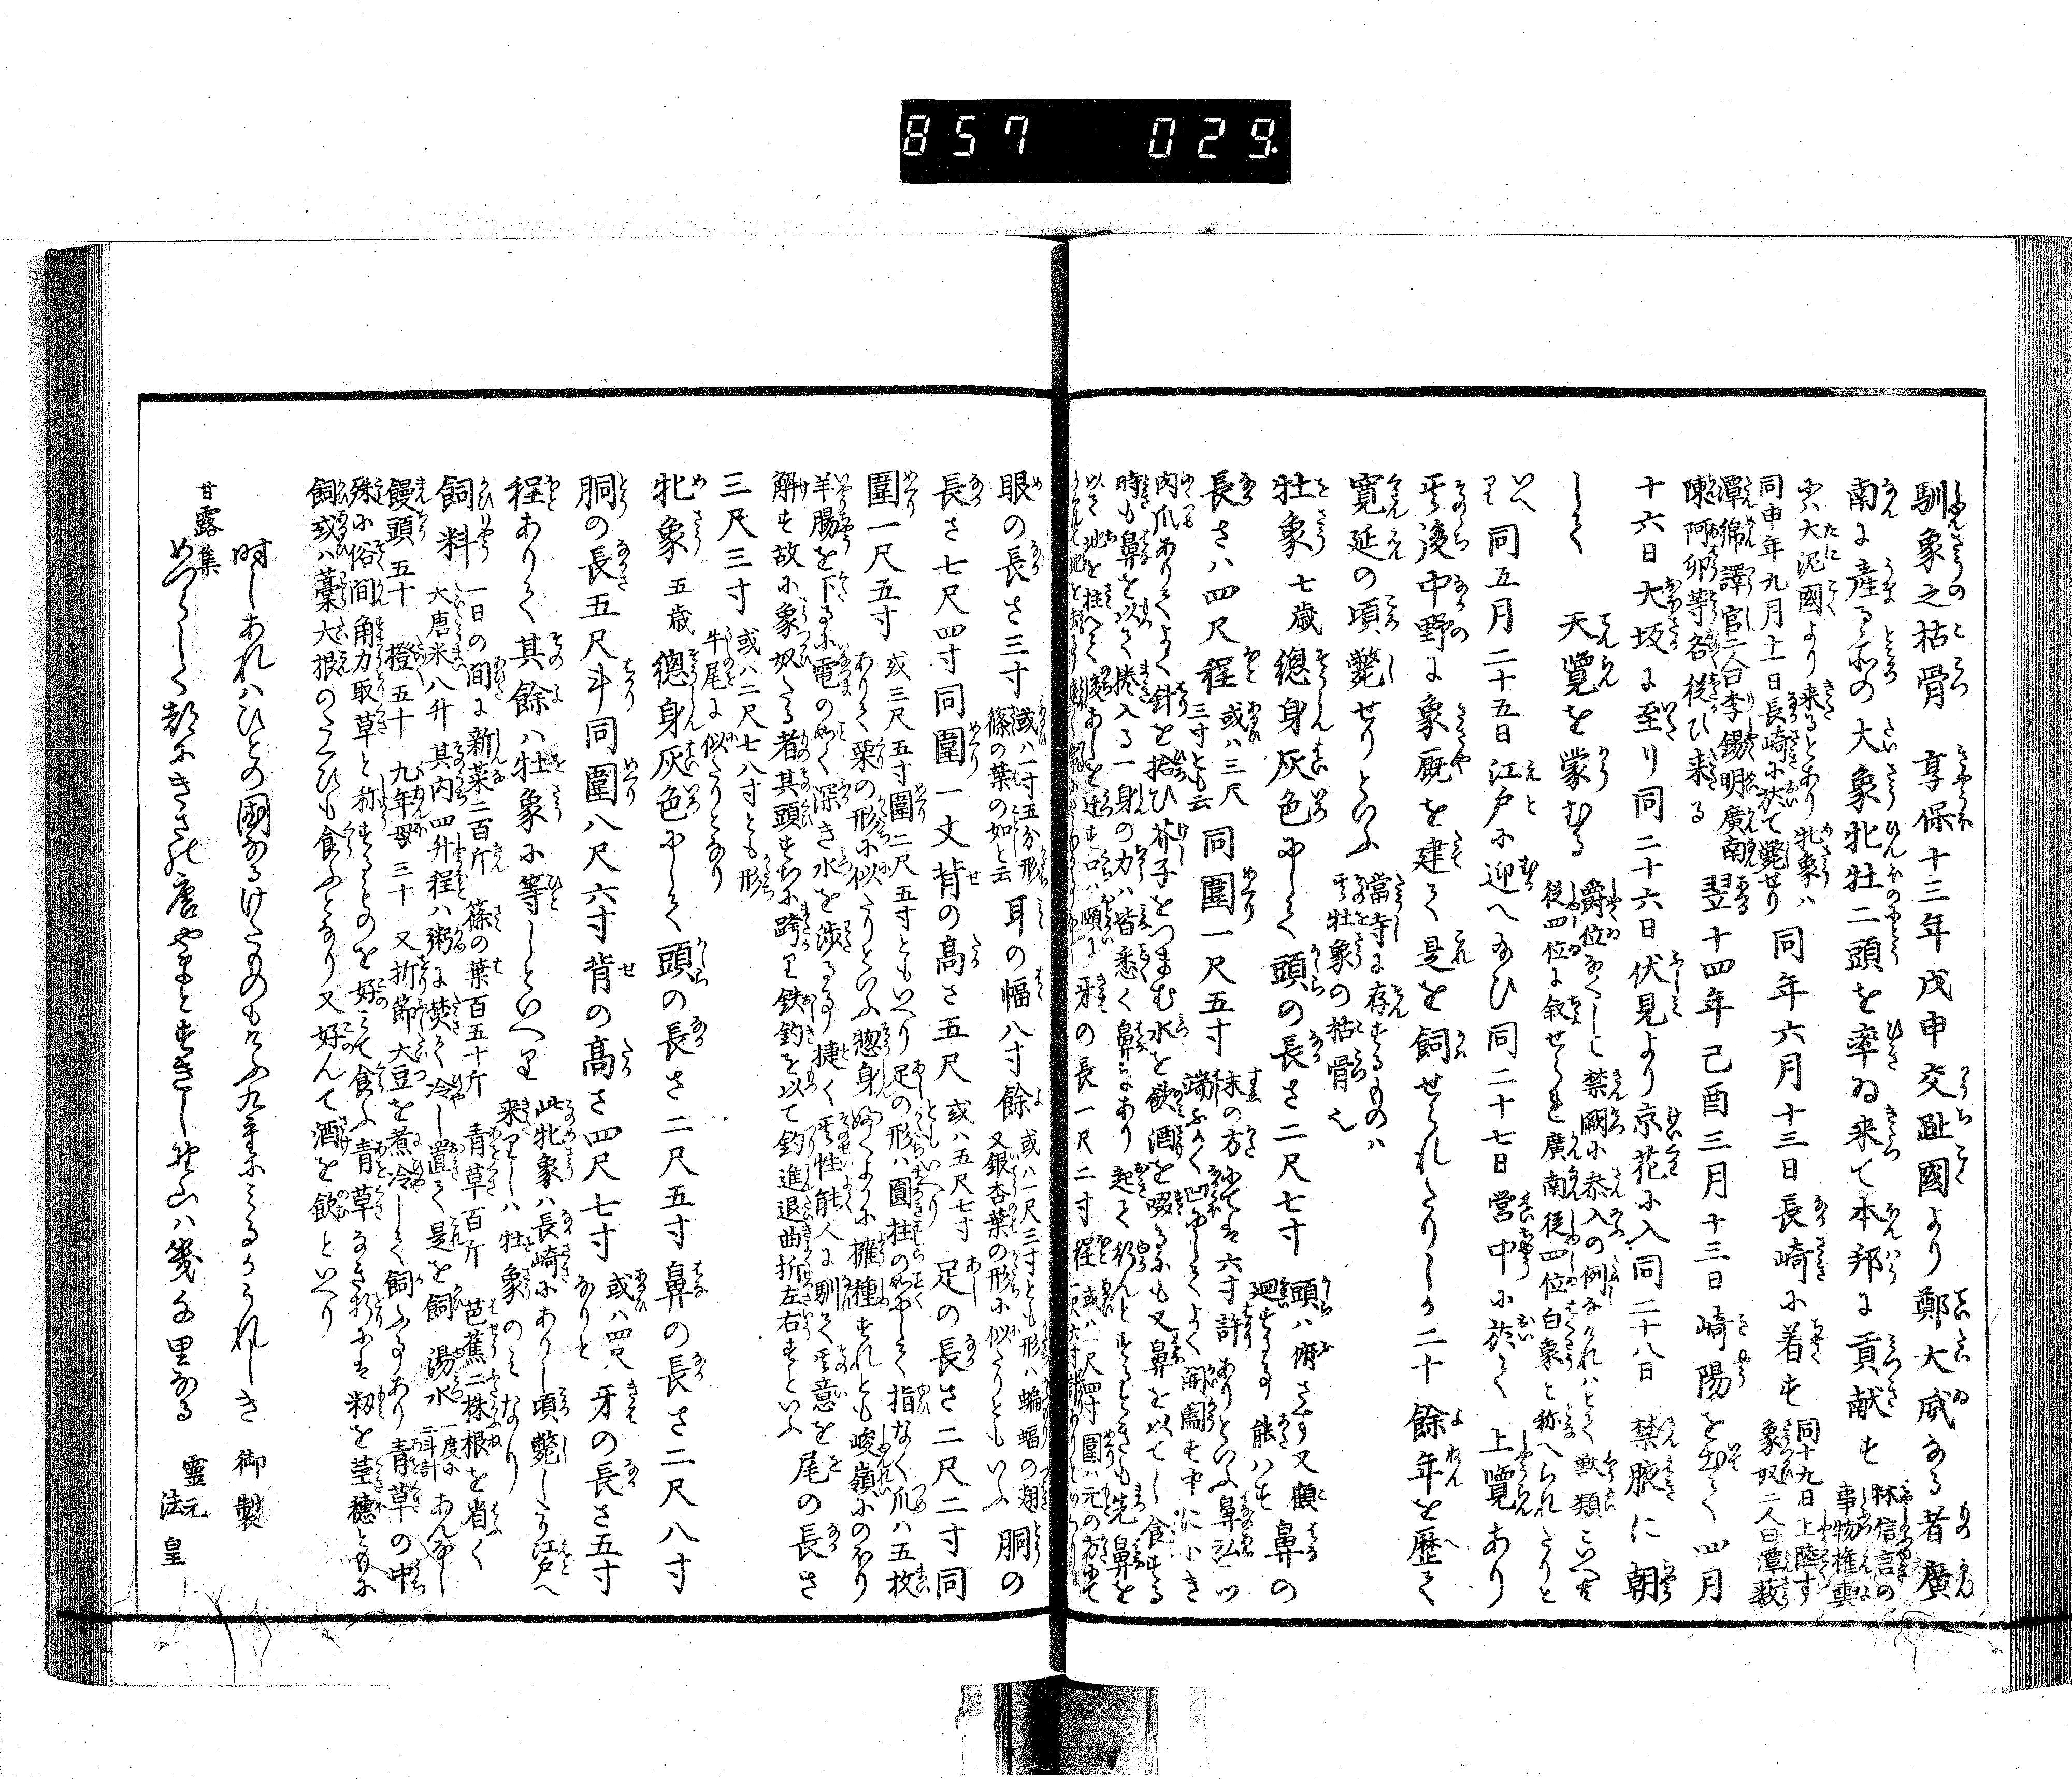 857 029.
馴象之枯骨 享保十三年戊申交趾國より鄭大威なる者廣
南に産る所の大象牝牡二頭を率ゐ来て本邦に貢献す 林信言の事物権輿
に大泥國より来るとあり牝象ハ
同申年九月十一日長崎に於て斃せり 同年六月十三日長崎に着す 同十九日上陸す象奴二人曰潭数
潭綿譯官二人曰李鎩明廣南
陳阿卯等各従ひ来る 翌十四年己酉三月十三日崎陽を出て四月
十六日大坂に至り同二十六日伏見より京花に入同二十八日 禁腋に朝
して 天覧を蒙むる 爵位なくして禁闕に参入の例なけれハとて獣類といへとも
従四位に叙せられ廣南従四位白象と称へられたりと
いへり 同五月二十五日江戸に迎へ給ひ同二十七日営中に於て 上覧あり
其後中野に象厩を建て是を飼せられたりしか二十餘年を歴て
寛延の頃斃せりといふ 當寺に存するものハ
其牡象の枯骨也
牡象 七歳 總身灰色にして頭の長さ二尺七寸 頭ハ俯さす又顧
廻する事能ハす 鼻の
長さハ四尺程 或ハ三尺三寸とも云 同圍一尺五寸 末の方にてハ六寸許ありといふ鼻弘二ツ
端ふかく凹にしてよく開闔す中に小き
肉爪ありてよく針を拾ひ芥子をつまむ水を飲酒を啜るにも又鼻を以てし食する
時も鼻を以て捲入る一身の力ハ皆悉く鼻にあり起て行んとするときも先鼻を
以て地を柱へて後あしを
牙の長一尺二寸程 或ハ一尺四寸圍ハ元の方にて
眼の長さ三寸 或ハ一寸五分形
篠の葉の如と云 耳の幅八寸餘 或ハ一尺三寸とも形ハ蝙蝠の翅
又銀杏葉の形に似たりともいふ 胴の
長さ七尺四寸同圍一丈背の高さ五尺 或ハ五尺七寸ともいへり 足の長さ二尺二寸同
圍一尺五寸 或三尺五寸圍二尺五寸ともいへり足の形ハ圓柱の如にして指なく爪ハ五枚
ありて栗の形に似たりといふ惣身
羊腸を下るに電の如く深き水を渉る事捷く其性能人に馴て其意を
解す故に象奴たる者其頭すちに跨り鉄釣を以て釣進退曲折左右すといふ 尾の長さ
三尺三寸 或ハ二尺七八寸とも形
牛尾に似たりとなり
牝象 五歳 總身灰色にして頭の長さ二尺五寸鼻の長さ二尺八寸
胴の長五尺斗同圍八尺六寸背の高さ四尺七寸 或ハ四尺なりと 牙の長さ五寸
程ありて其餘ハ牡象に等しといへり 此牝象ハ長崎にありし頃斃したり江戸へ
来りしハ牡象のみなり
飼料 一日の間に新菜二百斤 篠の葉百五十斤 青草百斤 芭蕉二株根を省く
大唐米八升 其内四升程ハ粥に焚て冷し置て是を飼 湯水 一度に二斗計 あんなし
饅頭五十 橙五十 九年母三十 又折節大豆を煮冷して飼ふ事あり青草の中
殊に俗間角力取草と称するものを好みて食ふ青草なき折にハ籾を茎穂ともに
飼或ハ藁大根のたくひも食ふとなり又好んて酒を飲といへり
時しあれハひとの國なるけたものもけふ九重にみるかうれしき 御製
甘露集
めつらしく都にきさの唐やまとすきし野山ハ幾千里なる 靈元法皇